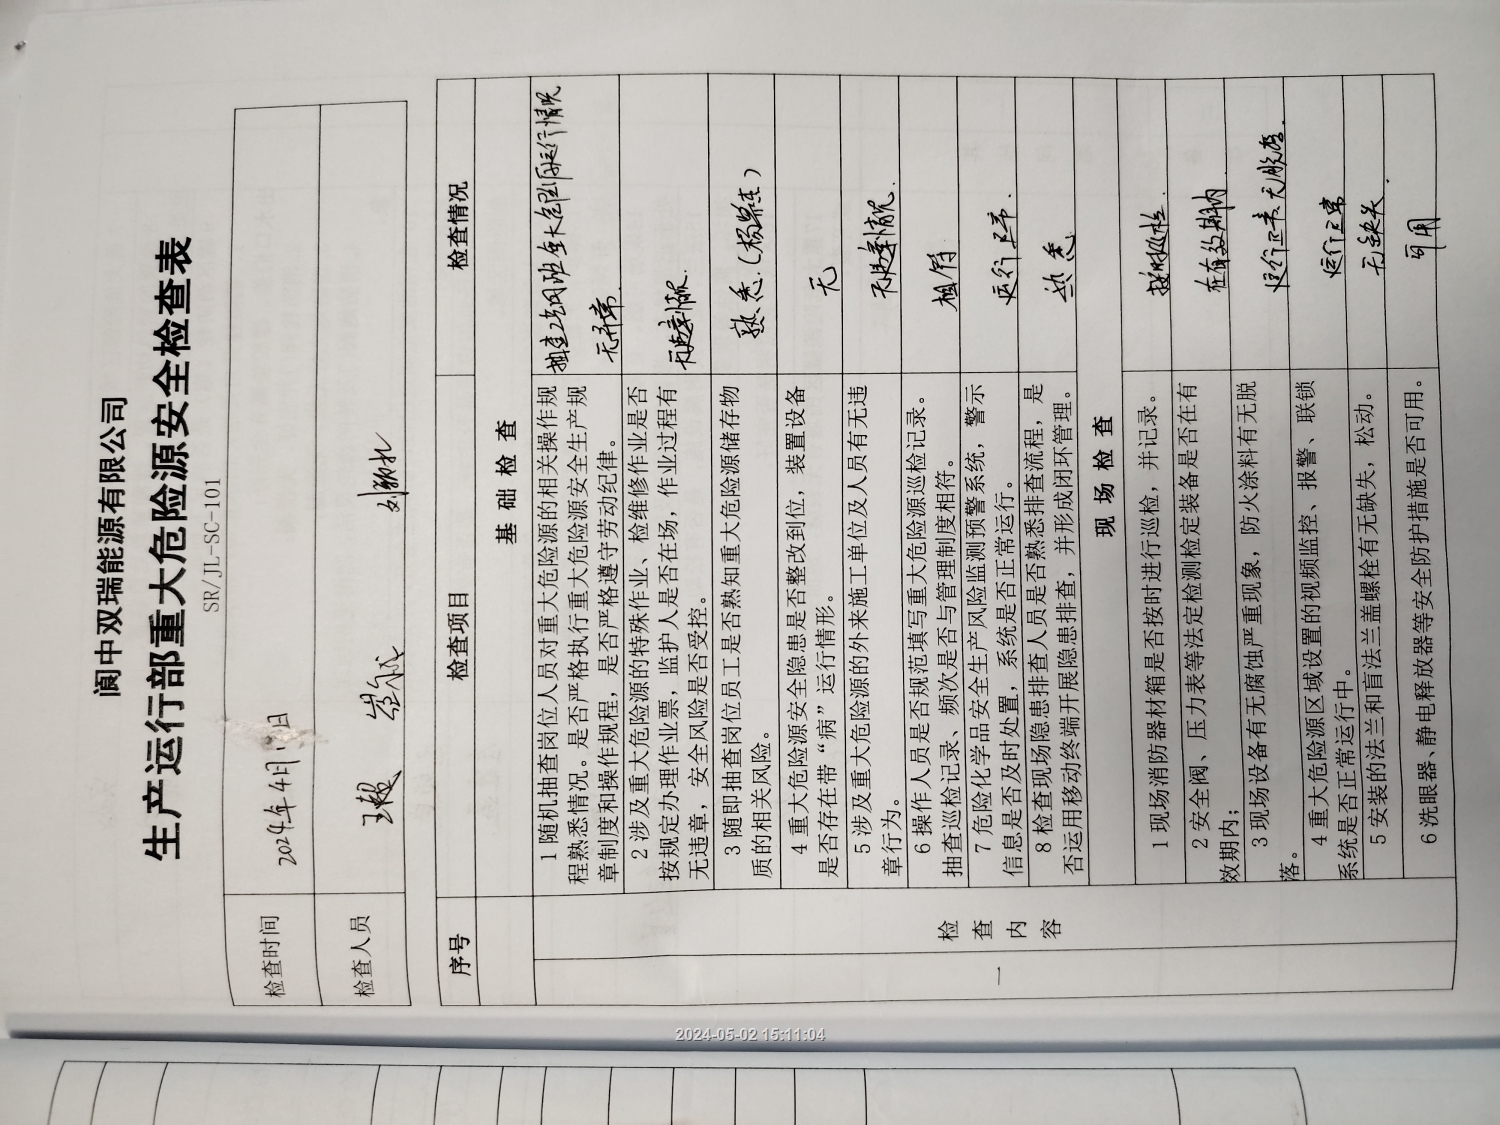 阆中双瑞能源有限公司
生产运行部重大危险源安全检查表
SR/JL-SC-101
检查时间 2024年4月 日
检查人员 王超
序号 检查项目 检查情况
基 础 检 查
检查内容
一
1 随机抽查岗位人员对重大危险源的相关操作规
程熟悉情况。是否严格执行重大危险源安全生产规
章制度和操作规程，是否严格遵守劳动纪律。
抽查 运行情况
无异常.
2 涉及重大危险源的特殊作业、检维修作业是否
按规定办理作业票，监护人是否在场，作业过程有
无违章，安全风险是否受控。
无违章情况.
3 随即抽查岗位员工是否熟知重大危险源储存物
质的相关风险。
熟悉.
4 重大危险源安全隐患是否整改到位，装置设备
是否存在带“病”运行情形。
无
5 涉及重大危险源的外来施工单位及人员有无违
章行为。
无违章情况.
6 操作人员是否规范填写重大危险源巡检记录。
抽查巡检记录、频次是否与管理制度相符。
相符
7 危险化学品安全生产风险监测预警系统，警示
信息是否及时处置，系统是否正常运行。
运行正常.
8 检查现场隐患排查人员是否熟悉排查流程，是
否运用移动终端开展隐患排查，并形成闭环管理。
熟悉.
现 场 检 查
1 现场消防器材箱是否按时进行巡检，并记录。
按时巡检.
2 安全阀、压力表等法定检测检定装备是否在有
效期内；
在有效期内
3 现场设备有无腐蚀严重现象，防火涂料有无脱
落。
运行正常 无脱落.
4 重大危险源区域设置的视频监控、报警、联锁
系统是否正常运行中。
运行正常
5 安装的法兰和盲法兰盖螺栓有无缺失，松动。
无缺失.
6 洗眼器、静电释放器等安全防护措施是否可用。
可用
2024-05-02 15:11:04